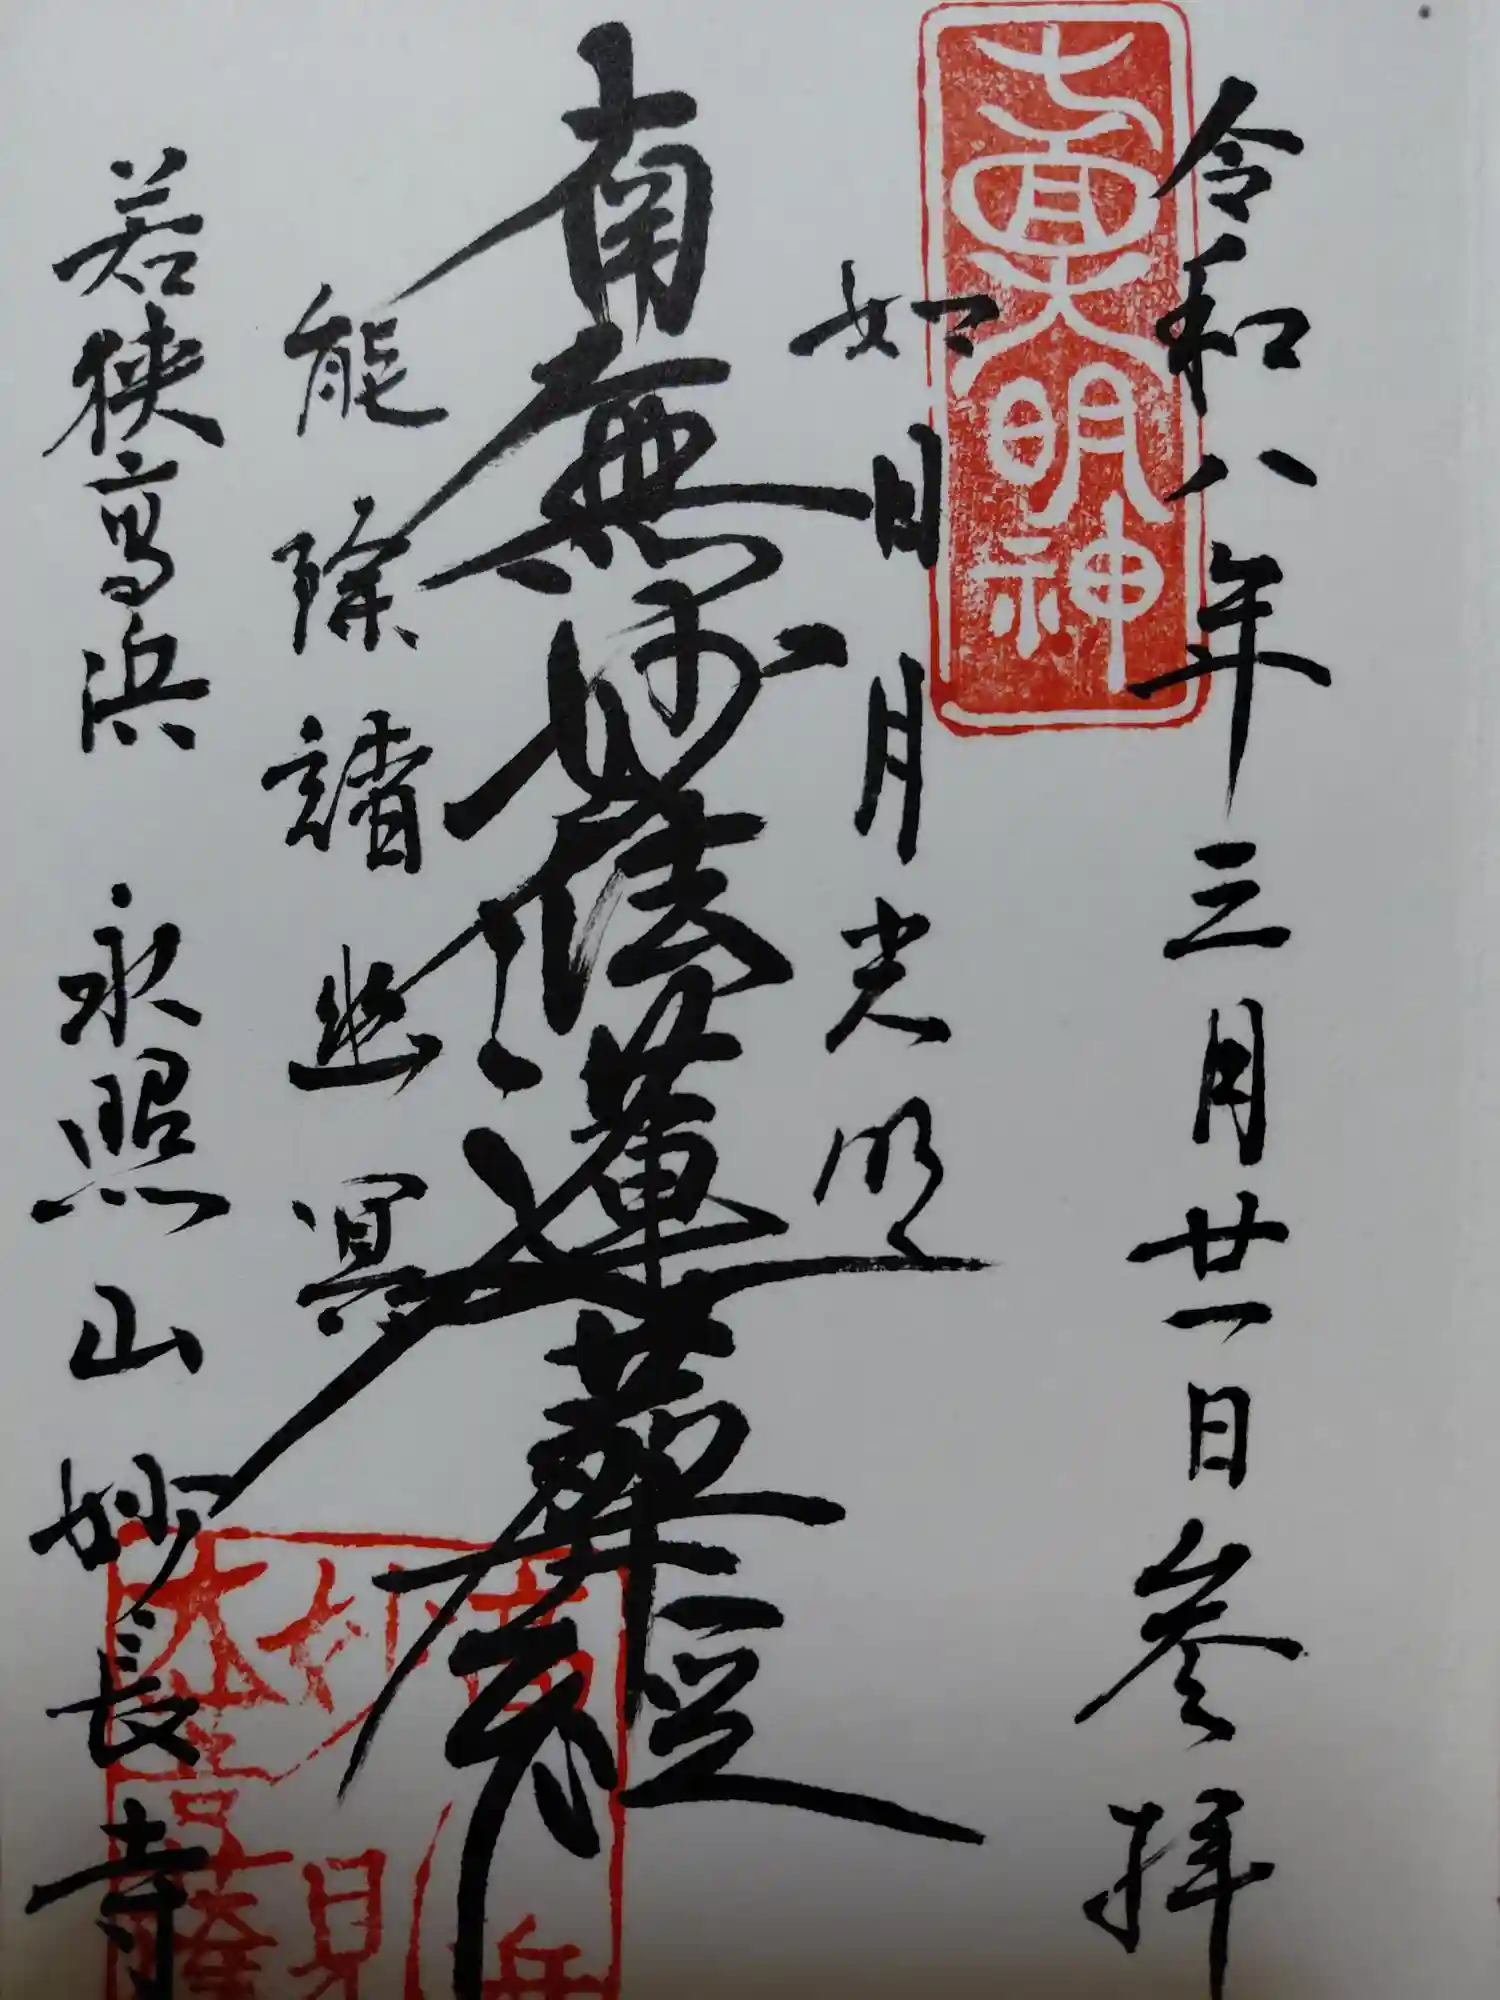 令和八年三月廿一日参拝
七面大明神
如日月光明
南無妙法蓮華経
能除諸幽冥
若狭高浜 永照山 妙長寺